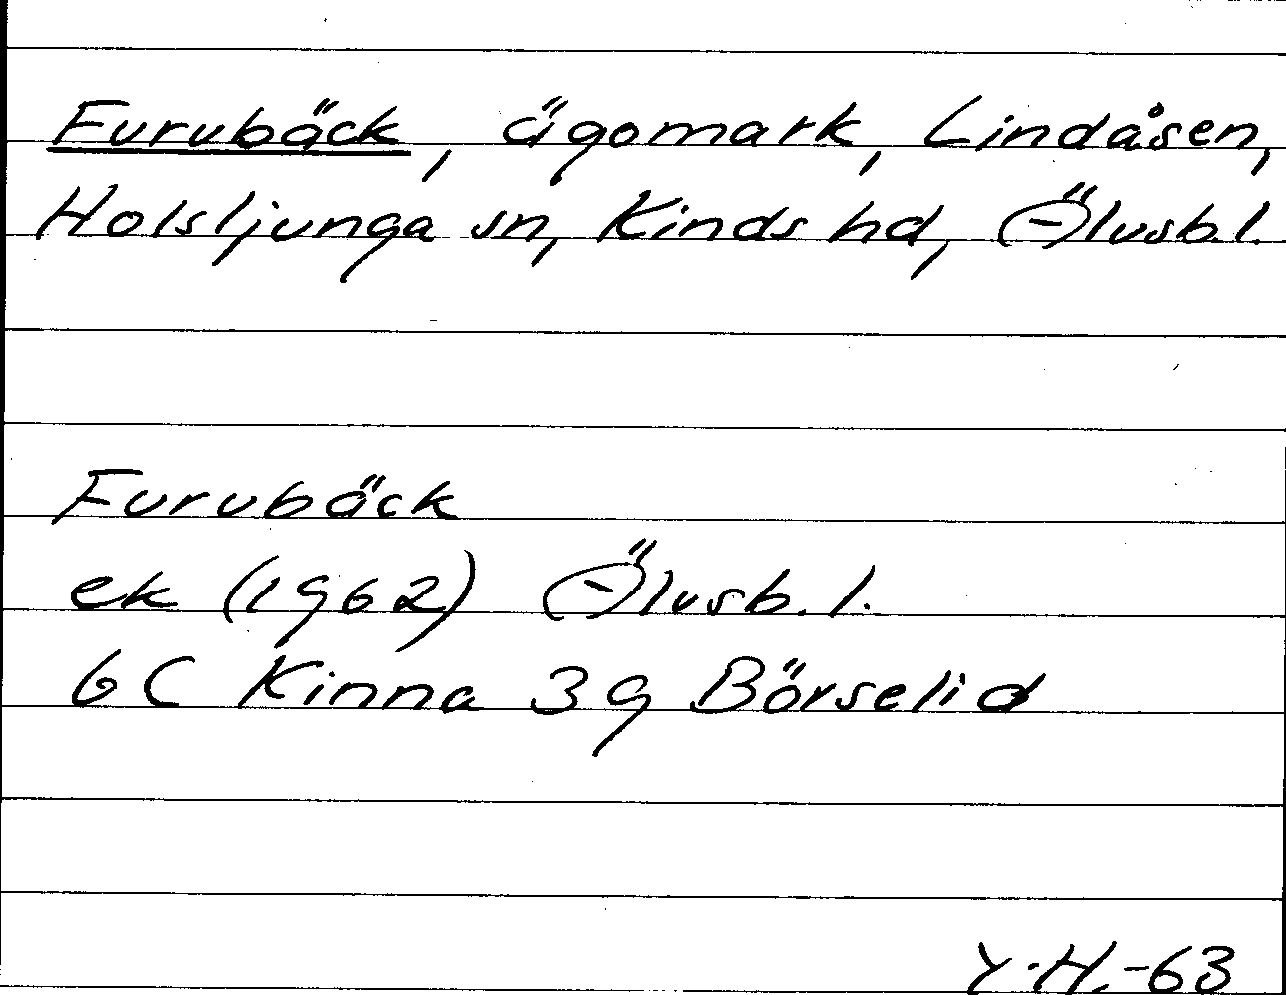 Furubäck, ägomark, Lindåsen,
Holsljunga sn, Kinds hd, Älvsb.l.
Furubäck
ek (1962) Älvsb.l.
6C Kinna 3g Börselid
Y.H.-63